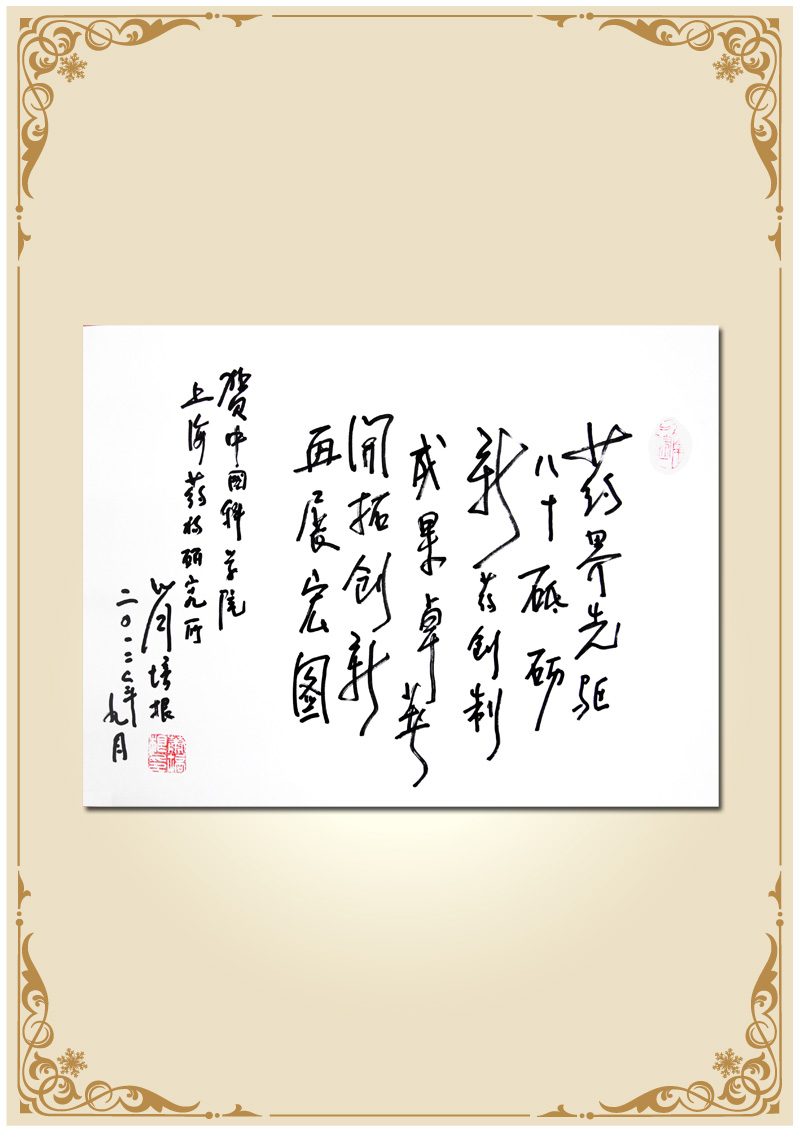 药界先驱
八十砥砺
新药创制
成果卓華
開拓创新
再展宏图
贺中国科学院
上海药物研究所
肖培根
二〇一二年九月